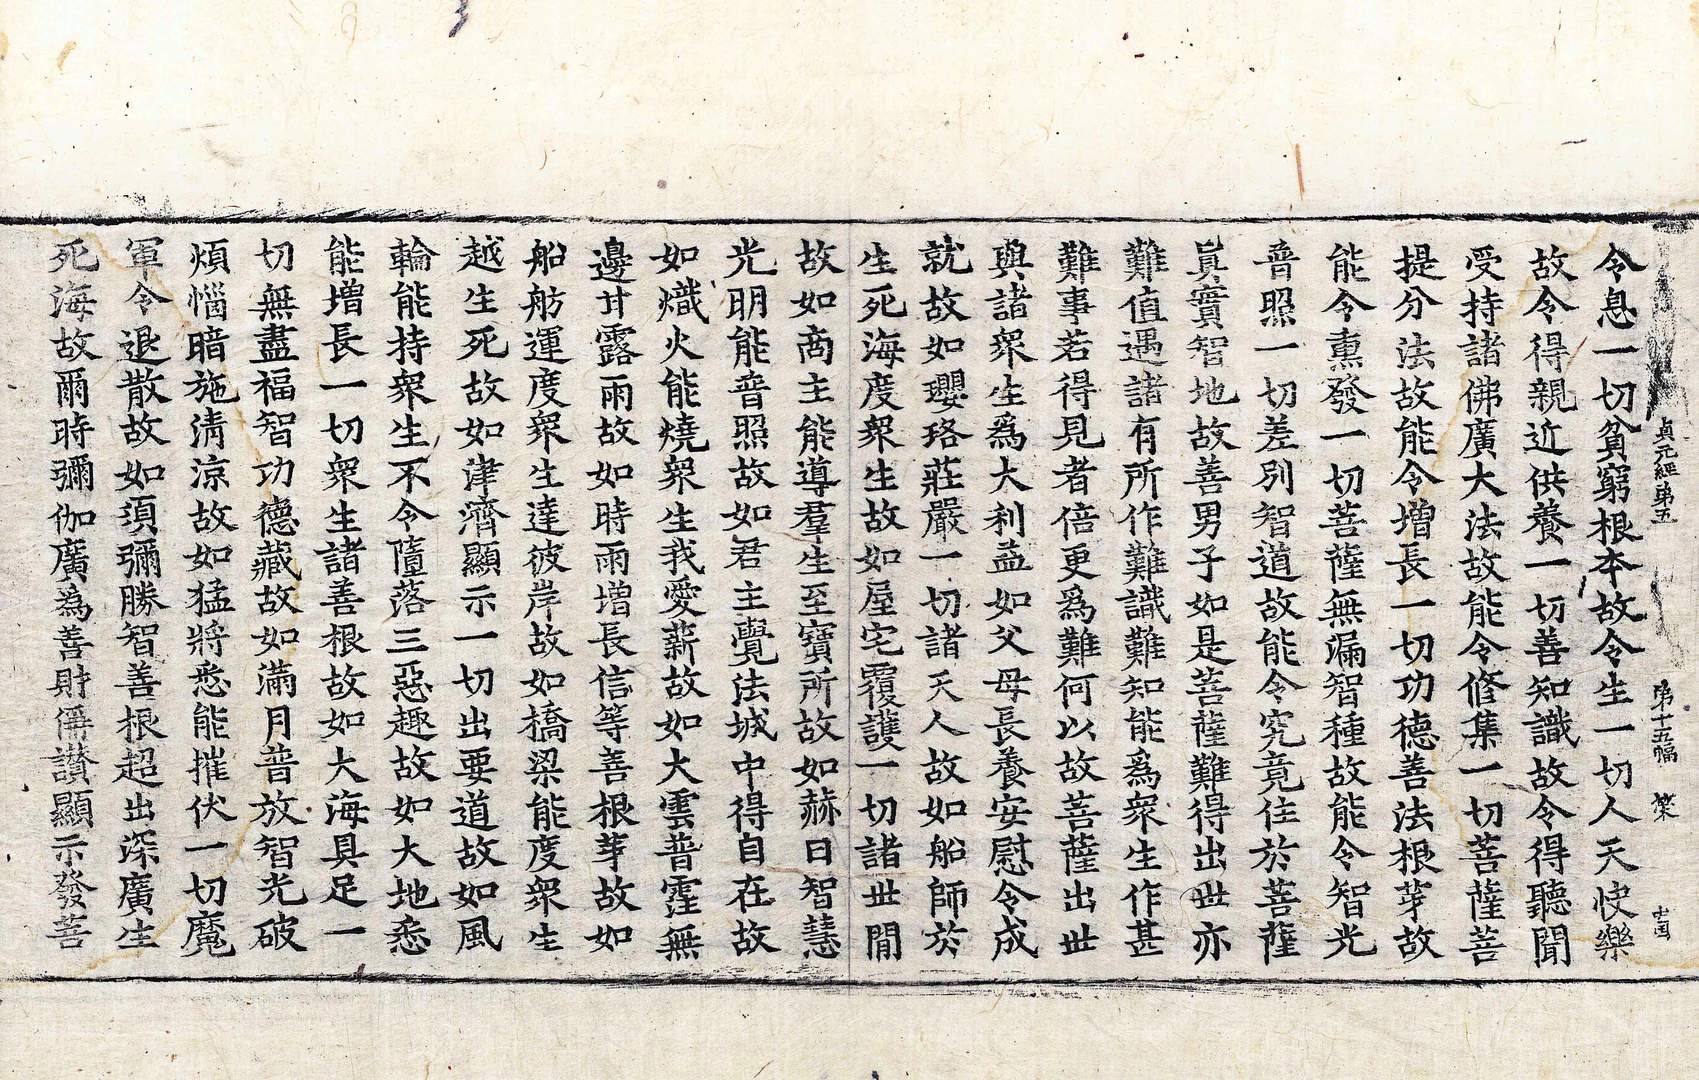 貞元經第五 第十五幅
令息一切貧窮根本故令生一切人天快樂
故令得親近供養一切善知識故令得聽聞
受持諸佛廣大法故能令修集一切菩薩菩
提分法故能令增長一切功德善法根芽故
能令熏發一切菩薩無漏智種故能令智光
普照一切差別智道故能令究竟住於菩薩
眞實智地故善男子如是菩薩難得出世亦
難值遇諸有所作難識難知能爲衆生作甚
難事若得見者倍更爲難何以故菩薩出世
與諸衆生爲大利益如父母長養安慰令成
就故如瓔珞莊嚴一切諸天人故如船師於
生死海度衆生故如屋宅覆護一切諸世間
故如商主能導羣生至寶所故如赫日智慧
光明能普照故如君主覺法城中得自在故
如熾火能燒衆生我愛薪故如大雲普霔無
邊甘露雨故如時雨增長信等善根芽故如
船舫運度衆生達彼岸故如橋梁能度衆生
越生死故如津濟顯示一切出要道故如風
輪能持衆生不令墮落三惡趣故如大地悉
能增長一切衆生諸善根故如大海具足一
切無盡福智功德藏故如滿月普放智光破
煩惱暗施清涼故如猛將悉能摧伏一切魔
軍令退散故如須彌勝智善根超出深廣生
死海故爾時彌伽廣爲善財偁讃顯示發菩